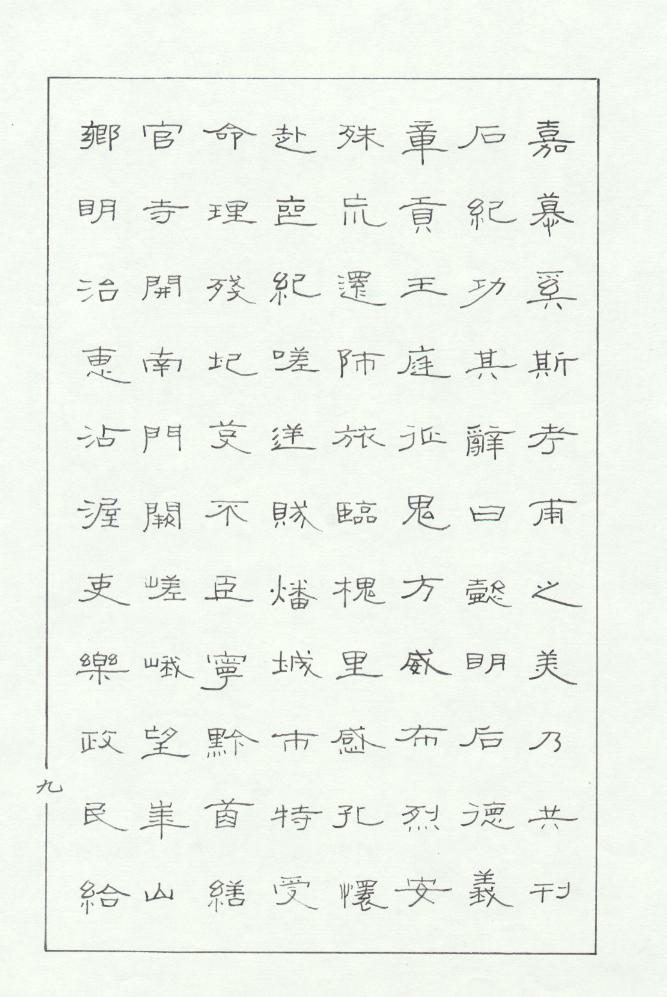 嘉慕奚斯考甫之美乃共刊
石紀功其辭曰懿明后德義
章貢王庭征鬼方威布烈安
殊巟還師旅臨槐里感孔懷
赴喪紀嗟逆賊燔城市特受
命理殘圮芟不臣寧黔首繕
官寺開南門闕嵯峨望崋山
鄉明治惠沾渥吏樂政民給
九